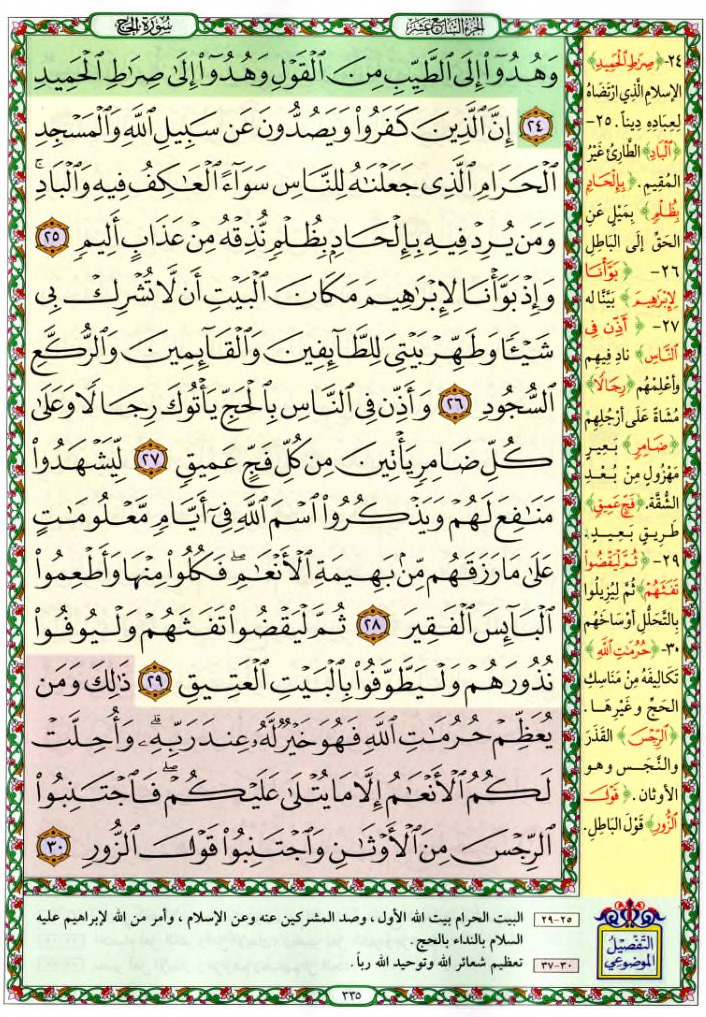 الجزء السابع عشر
سورة الحج
وَهُدُوٓا۟ إِلَى ٱلطَّيِّبِ مِنَ ٱلْقَوْلِ وَهُدُوٓا۟ إِلَىٰ صِرَٰطِ ٱلْحَمِيدِ
٢٤ إِنَّ ٱلَّذِينَ كَفَرُوا۟ وَيَصُدُّونَ عَن سَبِيلِ ٱللَّهِ وَٱلْمَسْجِدِ
ٱلْحَرَامِ ٱلَّذِى جَعَلْنَٰهُ لِلنَّاسِ سَوَآءً ٱلْعَٰكِفُ فِيهِ وَٱلْبَادِ ۚ
وَمَن يُرِدْ فِيهِ بِإِلْحَادٍۭ بِظُلْمٍ نُّذِقْهُ مِنْ عَذَابٍ أَلِيمٍ ٢٥
وَإِذْ بَوَّأْنَا لِإِبْرَٰهِيمَ مَكَانَ ٱلْبَيْتِ أَن لَّا تُشْرِكْ بِى
شَيْـًٔا وَطَهِّرْ بَيْتِىَ لِلطَّآئِفِينَ وَٱلْقَآئِمِينَ وَٱلرُّكَّعِ
ٱلسُّجُودِ ٢٦ وَأَذِّن فِى ٱلنَّاسِ بِٱلْحَجِّ يَأْتُوكَ رِجَالًا وَعَلَىٰ
كُلِّ ضَامِرٍ يَأْتِينَ مِن كُلِّ فَجٍّ عَمِيقٍ ٢٧ لِّيَشْهَدُوا۟
مَنَٰفِعَ لَهُمْ وَيَذْكُرُوا۟ ٱسْمَ ٱللَّهِ فِىٓ أَيَّامٍ مَّعْلُومَٰتٍ
عَلَىٰ مَا رَزَقَهُم مِّنۢ بَهِيمَةِ ٱلْأَنْعَٰمِ ۖ فَكُلُوا۟ مِنْهَا وَأَطْعِمُوا۟
ٱلْبَآئِسَ ٱلْفَقِيرَ ٢٨ ثُمَّ لْيَقْضُوا۟ تَفَثَهُمْ وَلْيُوفُوا۟
نُذُورَهُمْ وَلْيَطَّوَّفُوا۟ بِٱلْبَيْتِ ٱلْعَتِيقِ ٢٩ ذَٰلِكَ وَمَن
يُعَظِّمْ حُرُمَٰتِ ٱللَّهِ فَهُوَ خَيْرٌ لَّهُۥ عِندَ رَبِّهِۦ ۗ وَأُحِلَّتْ
لَكُمُ ٱلْأَنْعَٰمُ إِلَّا مَا يُتْلَىٰ عَلَيْكُمْ ۖ فَٱجْتَنِبُوا۟
ٱلرِّجْسَ مِنَ ٱلْأَوْثَٰنِ وَٱجْتَنِبُوا۟ قَوْلَ ٱلزُّورِ ٣٠
٢٤- ﴿صِرَٰطِ ٱلْحَمِيدِ﴾
الإسلامِ الَّذِي ارْتَضَاهُ
لِعِبَادِهِ دِيناً. ٢٥-
﴿ٱلْبَادِ﴾ الطَّارِئُ غَيْرُ
المُقِيمِ. ﴿بِإِلْحَادٍ
بِظُلْمٍ﴾ بِمَيْلٍ عَنِ
الحَقِّ إلَى البَاطِلِ
٢٦- ﴿بَوَّأْنَا
لِإِبْرَٰهِيمَ﴾ بَيَّنَّا له
٢٧- ﴿أَذِّن فِى
ٱلنَّاسِ﴾ نادِ فِيهِم
وأَعْلِمْهُم ﴿رِجَالًا﴾
مُشَاةً عَلَى أرْجُلِهِم
﴿ضَامِرٍ﴾ بَعِيرٍ
مَهْزُولٍ مِنْ بُعْدِ
الشُّقَّة. ﴿فَجٍّ عَمِيقٍ﴾
طَرِيقٍ بَعِيدٍ.
٢٩- ﴿ثُمَّ لْيَقْضُوا۟
تَفَثَهُمْ﴾ ثُمَّ لِيُزِيلُوا
بِالتَّحَلُّلِ أوْسَاخَهُم
٣٠- ﴿حُرُمَٰتِ ٱللَّهِ﴾
تَكَالِيفَهُ مِنْ مَنَاسِكِ
الحَجِّ وغَيْرِهَا.
﴿ٱلرِّجْسَ﴾ القَذَرَ
والنَّجَسَ وهو
الأوثان. ﴿قَوْلَ
ٱلزُّورِ﴾ قَوْلَ البَاطِلِ.
التَّفْصِيلُ
الموضوعي
٢٥-٢٩ البيت الحرام بيت الله الأول ، وصد المشركين عنه وعن الإسلام ، وأمر من الله لإبراهيم عليه
السلام بالنداء بالحج .
٣٠-٣٧ تعظيم شعائر الله وتوحيد الله رباً .
٣٣٥